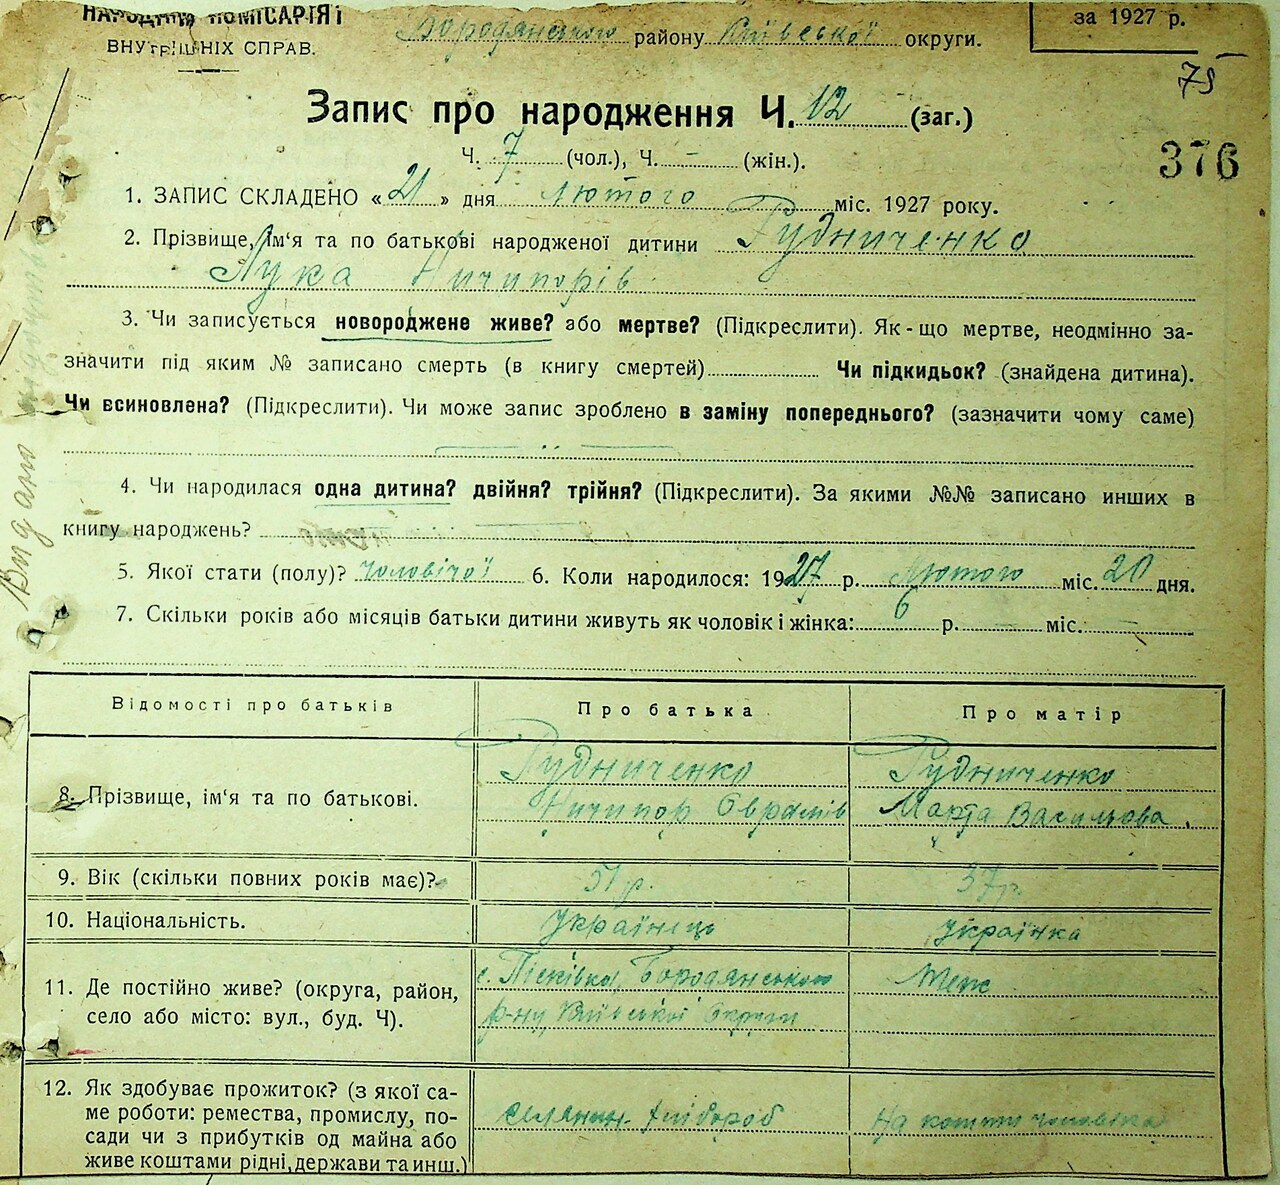 НАРОДНІЙ КОМІСАРІЯТ
ВНУТРІШНІХ СПРАВ.
Бородянського району Київської округи.
за 1927 р.
75
Запис про народження Ч. 12 (заг.)
Ч. 7 (чол.), Ч. – (жін.).
376
1. ЗАПИС СКЛАДЕНО « 21 » дня лютого міс. 1927 року.
2. Прізвище, ім‘я та по батькові народженої дитини Рудниченко
Лука Ничипорів
3. Чи записується новороджене живе? або мертве? (Підкреслити). Як-що мертве, неодмінно за-
значити під яким № записано смерть (в книгу смертей) Чи підкидьок? (знайдена дитина).
Чи всиновлена? (Підкреслити). Чи може запис зроблено в заміну попереднього? (зазначити чому саме)
4. Чи народилася одна дитина? двійня? трійня? (Підкреслити). За якими №№ записано инших в
книгу народжень?
5. Якої стати (полу)? чоловічої 6. Коли народилося: 1927 р. лютого міс. 20 дня.
7. Скільки років або місяців батьки дитини живуть як чоловік і жінка: 6 р. – міс. –
Видано
Відомості про батьків Про батька Про матір
8. Прізвище, ім‘я та по батькові. Рудниченко Ничипор Оврамів Рудниченко Марта Васильова
9. Вік (скільки повних років має)? 51 р. 37 р.
10. Національність. українець українка
11. Де постійно живе? (округа, район,
село або місто: вул., буд. Ч).
с. Пісківка, Бородянського
р-ну, Київської Округи
Теж
12. Як здобуває прожиток? (з якої са-
ме роботи: ремества, промислу, по-
сади чи з прибутків од майна або
живе коштами рідні, держави та инш.)
селянин. хлібороб
На кошти чоловіка